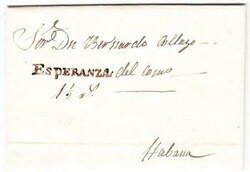 Sor. Dn Bernardo Collazo
ESPERANZA del como
1½ rs.
Habana